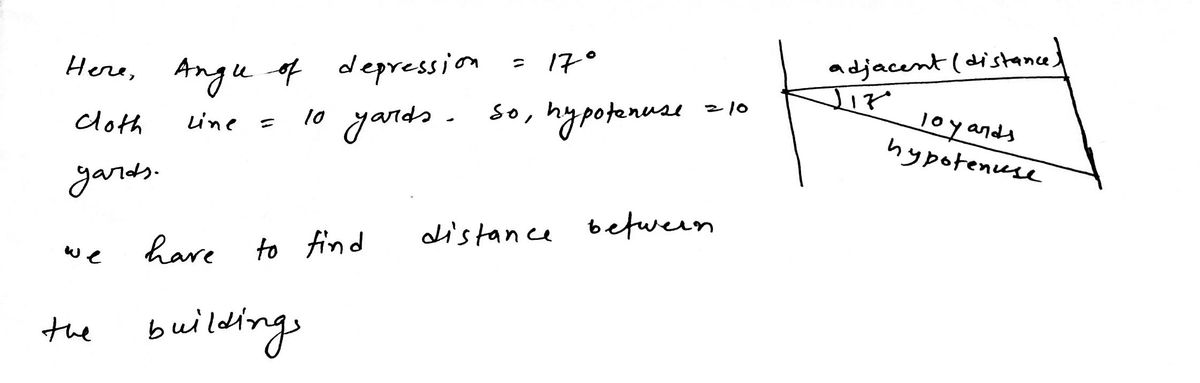 Here, Angle of depression = 17°
Cloth Line = 10 yards. So, hypotenuse = 10
yards.
we have to find distance between
the buildings
adjacent (distance)
17°
10 yards
hypotenuse